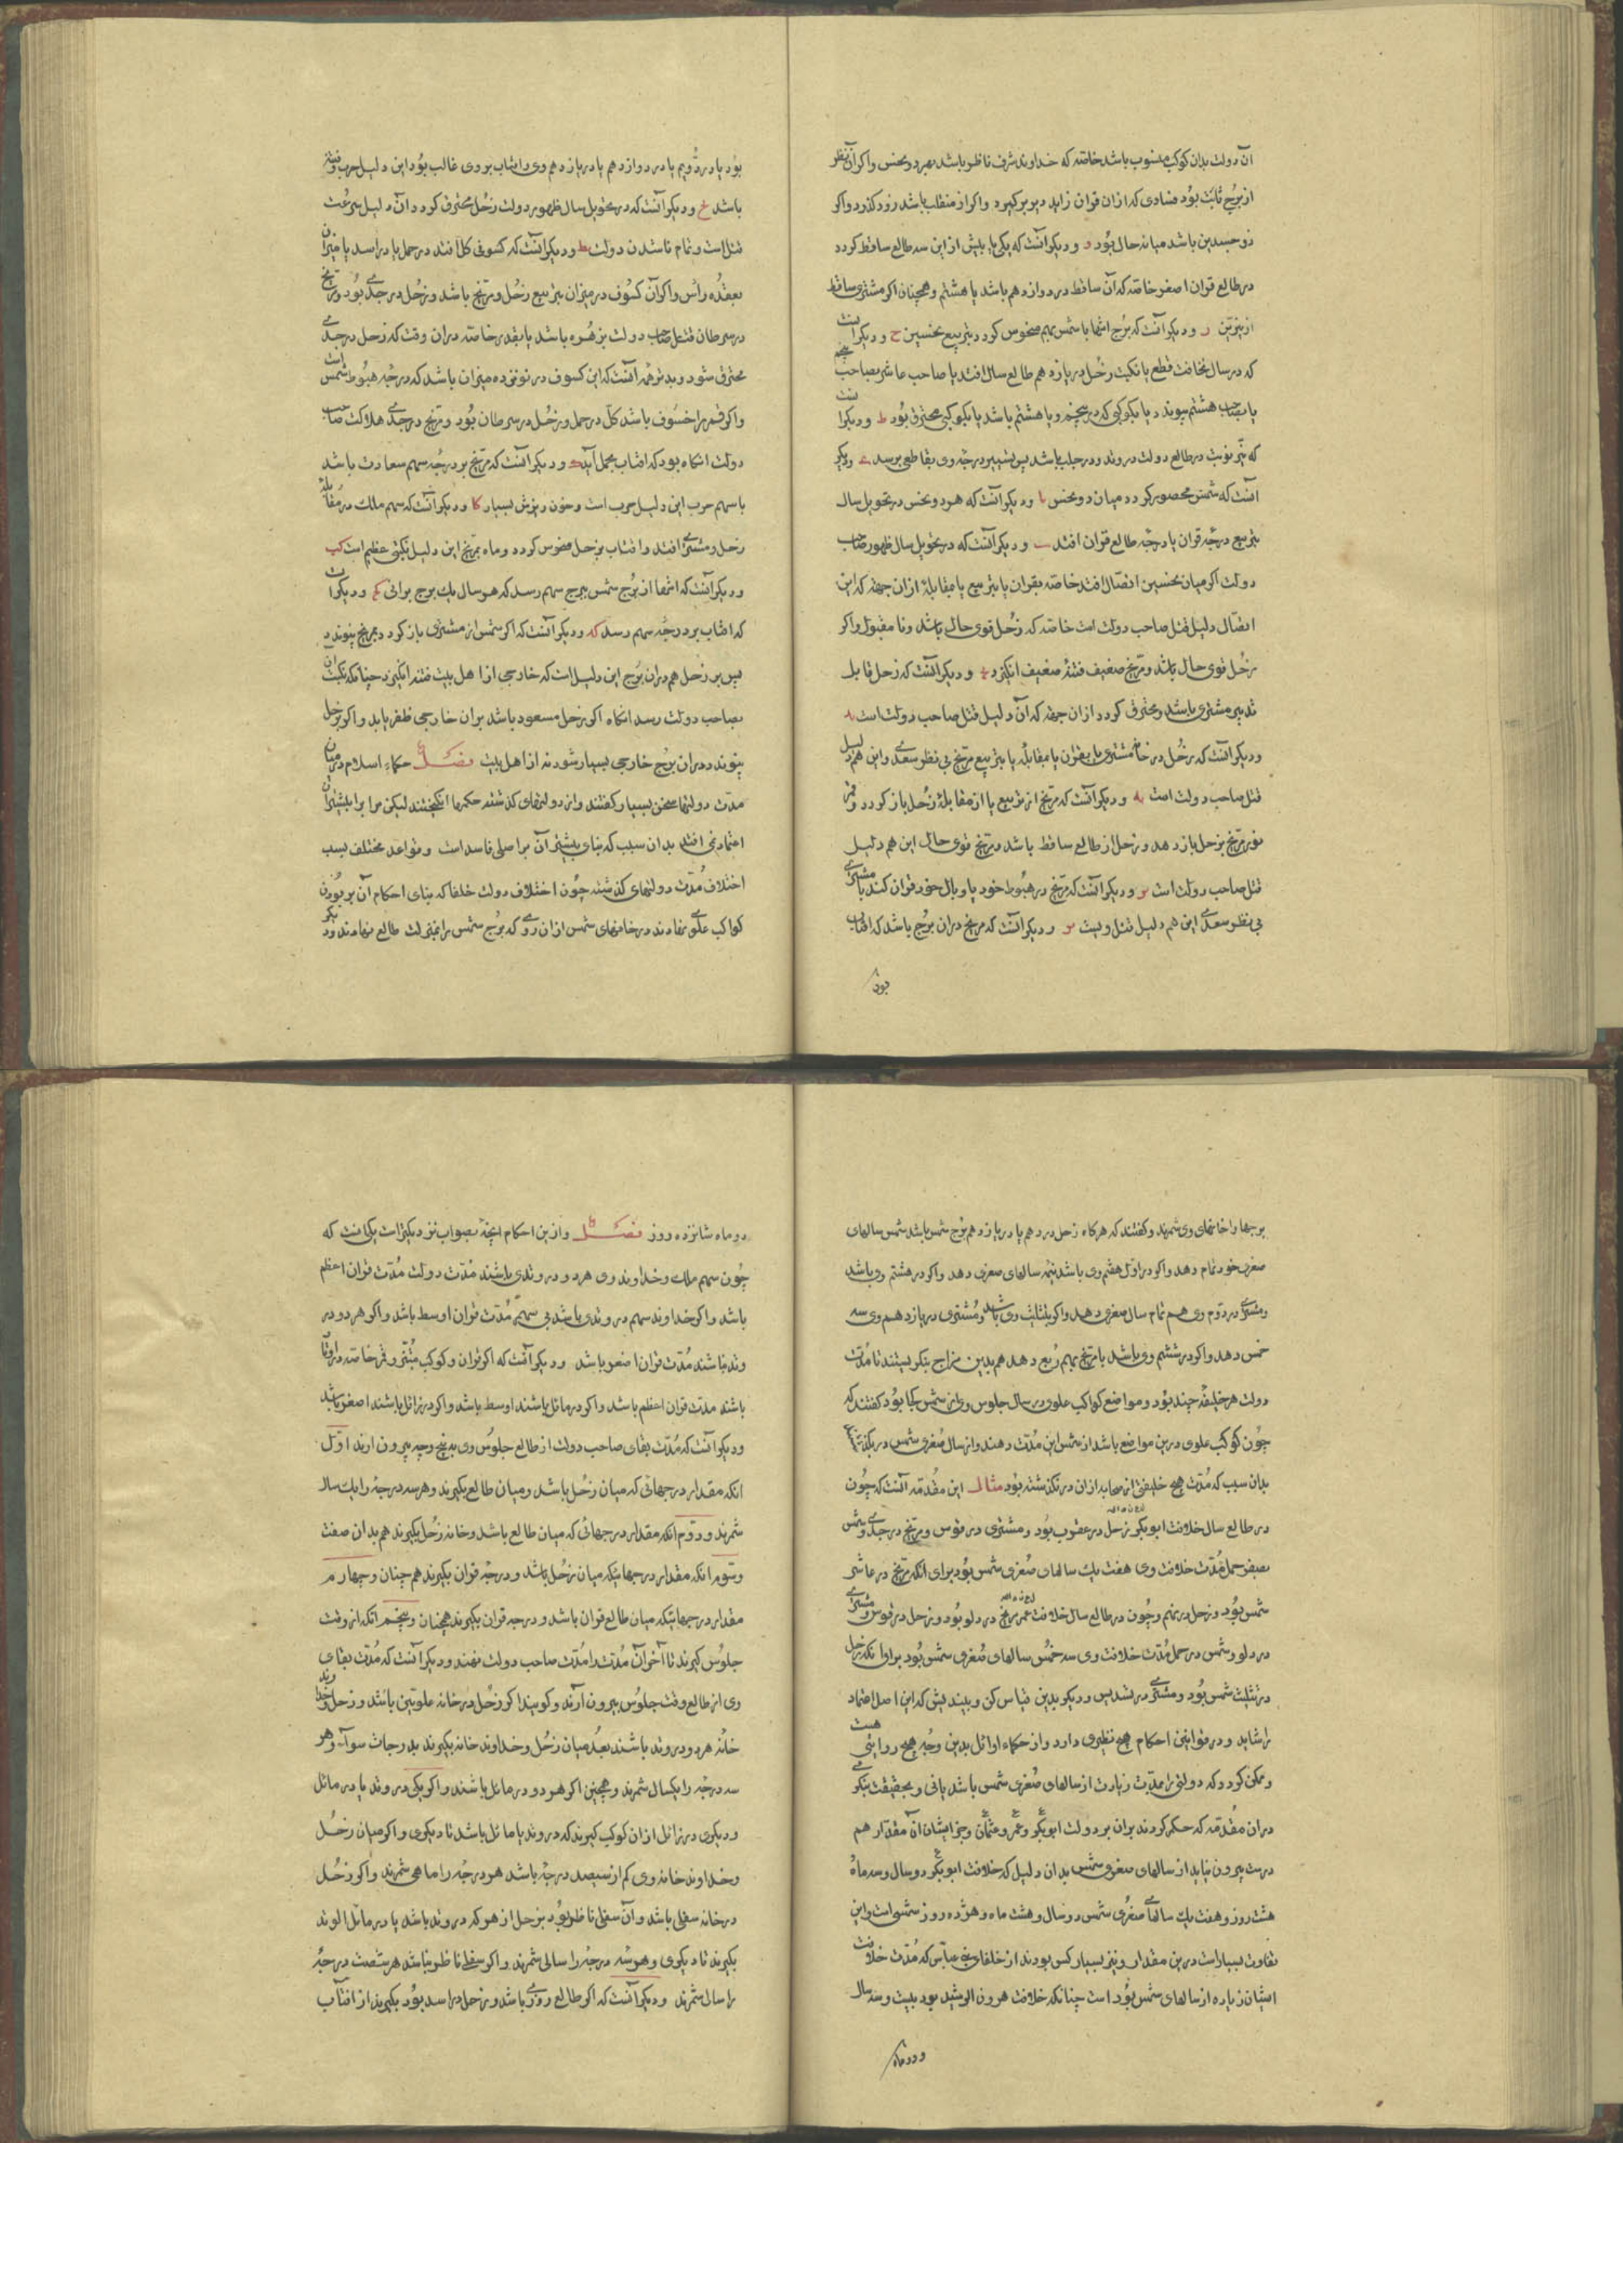 آن دولت بدان کوکب منسوب باشد خاصه که خداوند شرف ناظر باشد بهر دو نحس واکر آن نظر
از برج ثابت بود فسادی که از ان قران زاید دیر برکیرد واکر از منقلب باشد زود کذرد واکر
ذو جسدین باشد میانه حال بود و ودیکر آنست که یکی یا بیش از این سه طالع ساقط کردد
در طالع قران اصغر خاصه که آن ساقط در دوازدهم باشد یا هشتم وهمچنان اکر مشتری ساقط
از نیرین ز ودیکر آنست که برج انتها یا شمس بهم منحوس کردد بتربیع نحسین ح ودیکر آنست
که در سال مخافت قطع یا نکبت زحل در یازدهم طالع سال افتد یا صاحب عاشر بصاحب
یا بصاحب هشتم پیوندد یا بکوکبی که در پنجم ویا هشتم باشد یا بکوکبی محترق بود ط ودیکر آنست
که نیر نوبت در طالع دولت در وتد ودر حلب باشد پس بتسییر درجه وی بقاطعی برسد ی ودیکر
آنست که شمس محصور کردد میان دو نحس یا ودیکر آنست که هر دو نحس در تحویل سال
بتربیع درجه قران یا درجه طالع قران افتد یب ودیکر آنست که در تحویل سال ظهور صاحب
دولت اکر میان نحسین اتصال افتد خاصه بقران یا بتربیع یا مقابله از ان جهة که این
اتصال دلیل قتل صاحب دولت است خاصه که زحل قوی حال باشد ونا مقبول واکر
زحل قوی حال باشد ومریخ ضعیف فتنهٔ ضعیف انکیزد ید ودیکر آنست که زحل قابل
تدبیر مشتری باشد ومحترق کردد از ان جهة که آن دلیل قتل صاحب دولت است یه
ودیکر آنست که زحل در خانه مشتری باشد بقران یا مقابله یا بتربیع مریخ بی نظر سعدی واین هم دلیل
قتل صاحب دولت است یه ودیکر آنست که مریخ از تربیع یا از مقابلهٔ زحل باز کردد وقمر
نور مریخ بزحل باز دهد وزحل از طالع ساقط باشد ومریخ قوی حال این هم دلیل
قتل صاحب دولت است یو ودیکر آنست که مریخ در هبوط خود یا وبال خود قران کند با مشتری
بی نظر سعدی این هم دلیل قتل ویست یو ودیکر آنست که مریخ دران برج باشد که افتاب
بود
بود یا در دویم یا در دوازدهم یا در یازدهم وی وافتاب بر وی غالب بود این دلیل حرب وفتنه
باشد یح ودیکر آنست که در تحویل سال ظهور دولت زحل محترق کردد آن دلیل سرعت
قتل است وتمام ناشدن دولت یط ودیکر آنست که کسوفی کل افتد در حمل یا در اسد یا میزان
بعقده رأس واکر آن کسوف در میزان بتربیع زحل ومریخ باشد وزحل در جدی بود ومریخ
در سرطان قتل صاحب دولت بزهره باشد یا بغدر خاصه دران وقت که زحل در جدی
محترق شود وبدتر همه آنست که این کسوف در نوزده میزان باشد که درجه هبوط شمس است
واکر قمر را خسوف باشد کل در حمل وزحل در سرطان بود ومریخ در جدی هلاکت صاحب
دولت انکاه بود که افتاب بحمل آید ک ودیکر آنست که مریخ بر درجه سهم سعادت باشد
یا سهم حرب این دلیل حرب است وخون ریزش بسیار کا ودیکر آنست که سهم ملک در مقابله
زحل ومشتری افتد وافتاب بزحل منحوس کردد وماه بمریخ این دلیل نکبتی عظیم است کب
ودیکر آنست که انتها از برج شمس ببرج سهم رسد که هر سال یک برج برانی کج ودیکر آنست
که افتاب بر درجه سهم رسد کد ودیکر آنست که اکر شمس از مشتری باز کردد بمریخ پیوندد
پس بر زحل هم دران برج این دلیل است که خارجی از اهل بیت فتنه انکیزد چنانکه نکبت ان
بصاحب دولت رسد انکاه اکر زحل مسعود باشد بران خارجی ظفر یابد واکر بزحل
پیوندد دران برج خارجی بسیار شود نه از اهل بیت فصل حکماء اسلام در میان
مدت دولتها سخن بسیار کفتند واز دولتهای کذشته حکمها انکیختند لیکن مرا بر ابیشتر ان
اعتماد نمی افتد بدان سبب که بنای بیشتر آن بر اصلی فاسد است وقواعد مختلف بسبب
اختلاف مدت دولتهای کذشته چون اختلاف دولت خلفا که بنای احکام آن بر بودن
کواکب علوی نهادند در خانهای شمس از ان روی که برج شمس را بمنزلت طالع نهادند ودیکر
برجها را خانهای وی شمرند وکفتند که هرکاه زحل در دهم یا در یازدهم برج شمس باشد شمس سالهای
صغری خود تمام دهد واکر در اول هفتم وی باشد نیمه سالهای صغری دهد واکر در هشتم وی باشد
ومشتری در دوم وی هم تمام سال صغری دهد واکر بتثلیث وی باشد ومشتری در یازدهم وی سه
خمس دهد واکر در ششم وی باشد با مریخ بهم ربع دهد هم بدین مزاج بنکریستند تا مدت
دولت هر خلیفه چند بود ومواضع کواکب علوی در سال جلوس وی از شمس کجا بود کفتند که
چون کوکب علوی درین مواضع باشد از شمس این مدت دهند واز سال صغری شمس در نکذشتند
بدان سبب که مدت هیچ خلیفتی از صحابه از ان در نکذشته بود مثال این مقدمه آنست که چون
در طالع سال خلافت ابوبکر زحل در عقرب بود ومشتری در قوس ومریخ در جدی وشمس
بصفر حمل مدت خلافت وی هفت یک سالهای صغری شمس بود برای آنکه مریخ در عاشر
شمس بود وزحل در نهم وچون در طالع سال خلافت عمر مریخ در دلو بود وزحل در قوس ومشتری
در دلو وشمس در حمل مدت خلافت وی سه خمس سالهای صغری شمس بود برای آنکه زحل
در تثلیث شمس بود ومشتری در تسدیس ودیکر بدین قیاس کن وببیندیش که این اصل اعتماد
را شاید ودر قوانین احکام هیچ نظیری دارد واز حکماء اوائل بدین وجه هیچ روایتی هست
وممکن کردد که دولتی را مدت زیادت از سالهای صغری شمس باشد یا نی وبحقیقت بنکر
دران مقدمه که حکم کردند بران بر دولت ابوبکر وعمر وعثمان وجز ایشان آن مقدار هم
درست بیرون نیاید از سالهای صغری شمس بدان دلیل که خلافت ابوبکر دو سال وسه ماه
هشت روز وهفت یک سالهای صغری شمس دو سال وهشت ماه وهژده روز شمسی است واین
تفاوت بسیار است درین مقدار ونیز بسیار کس بودند از خلفای بنی عباس که مدت خلافت
ایشان زیاده از سالهای شمس بود است چنانکه خلافت هرون الرشید بود بیست وسه سال
ودو ماه
دو ماه شانزده روز فصل وازین احکام انچه بصواب نزدیکتر است یکی آنست که
چون سهم ملک وخداوند وی هر دو در وتدی باشند مدت دولت مدت قران اعظم
باشد واکر خداوند سهم در وتدی باشد بی سهم مدت قران اوسط باشد واکر هر دو در
وتد نباشند مدت قران اصغر باشد ودیکر آنست که اکر قران وکوکب مبتز وقمر خاصه در اوتاد
باشند مدت قران اعظم باشد واکر در مائل باشند اوسط باشد واکر در زائل باشند اصغر باشد
ودیکر آنست که مدت بقای صاحب دولت از طالع جلوس وی به پنج وجه بیرون ارند اول
انکه مقدار درجهاتی که میان زحل باشد ومیان طالع بکیرند وهر سه درجه را یک سال
شمرند ودوم انکه مقدار درجهاتی که میان طالع باشد وخانه زحل بکیرند هم بدان صفت
وسوم انکه مقدار درجهاتیکه میان زحل باشد ودرجه قران بکیرند هم چنان وچهارم
مقدار درجهاتیکه میان طالع قران باشد ودرجه قران بکیرند همچنان وپنجم انکه از وقت
جلوس کیرند تا آخر آن مدت را مدت صاحب دولت نهند ودیکر آنست که مدت بقای
وی از طالع وقت جلوس بیرون آرند وکویند اکر زحل در خانه علویین باشد وزحل وخداوند
خانه هر دو در وتد باشند بعد میان زحل وخداوند خانه بکیرند بدرجات سوآء وهر
سه درجه را یکسال شمرند وهمچنین اکر هر دو در مائل باشند واکر یکی در وتد یا در مائل
ودیکری در زائل از ان کوکب کیرند که در وتد یا مائل باشد تا دیکری واکر میان زحل
وخداوند خانه وی کم از سیصد درجه باشد هر درجه را ماهی شمرند واکر زحل
در خانه سفلی باشد وآن سفلی ناظر بود بزحل از هر که در وتد باشد یا در مائل الوتد
بکیرند تا دیکری وهر سه درجه را سالی شمرند واکر سفلی ناظر نباشد هر شصت درجه
را سال شمرند ودیکر آنست که اکر طالع روزی باشد وزحل در اسد بود بکیرند از افتاب